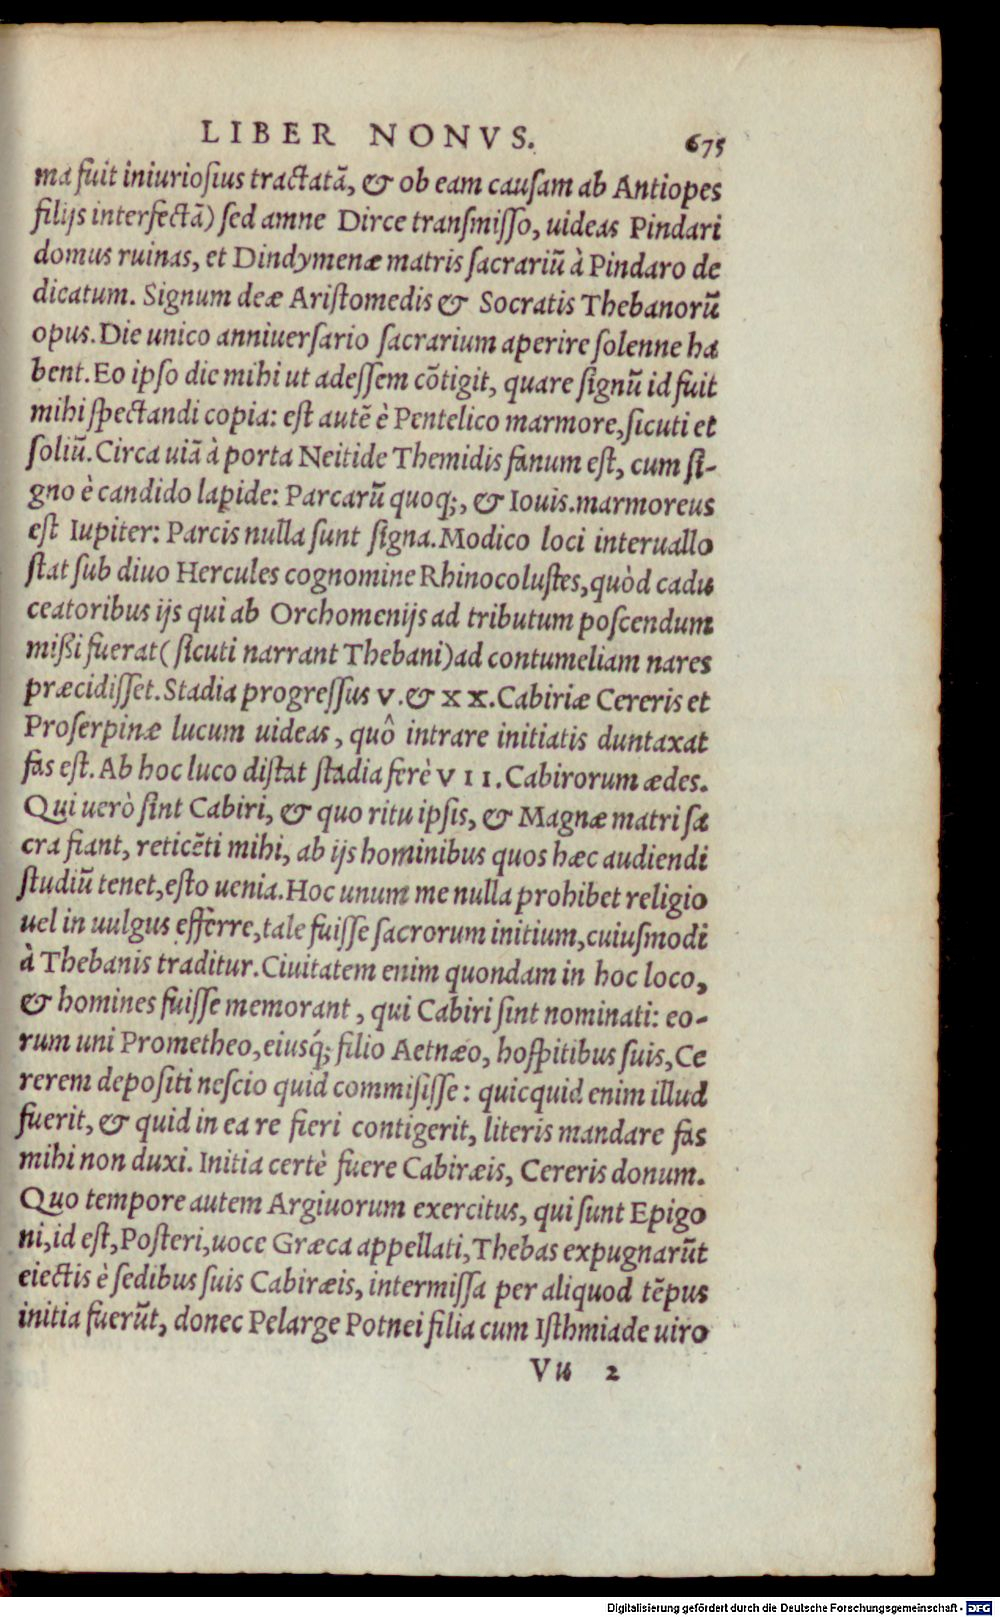 LIBER NONVS. 675
ma fuit iniuriosius tractatã, & ob eam causam ab Antiopes
filijs interfectã) sed amne Dirce transmisso, uideas Pindari
domus ruinas, et Dindymenæ matris sacrariũ à Pindaro de
dicatum. Signum deæ Aristomedis & Socratis Thebanorũ
opus. Die unico anniuersario sacrarium aperire solenne ha
bent. Eo ipso die mihi ut adessem cõtigit, quare signũ id fuit
mihi spectandi copia: est autẽ è Pentelico marmore, sicuti et
soliũ. Circa uiã à porta Neitide Themidis fanum est, cum si-
gno è candido lapide: Parcarũ quoq;, & Iouis. marmoreus
est Iupiter: Parcis nulla sunt signa. Modico loci interuallo
stat sub diuo Hercules cognomine Rhinocolustes, quòd cadu
ceatoribus ijs qui ab Orchomenijs ad tributum poscendum
mißi fuerat (sicuti narrant Thebani) ad contumeliam nares
præcidisset. Stadia progressus V. & XX. Cabiriæ Cereris et
Proserpinæ lucum uideas, quô intrare initiatis duntaxat
fas est. Ab hoc luco distat stadia ferè VII. Cabirorum ædes.
Qui uerò sint Cabiri, & quo ritu ipsis, & Magnæ matri sa
cra fiant, reticẽti mihi, ab ijs hominibus quos hæc audiendi
studiũ tenet, esto uenia. Hoc unum me nulla prohibet religio
uel in uulgus efferre, tale fuisse sacrorum initium, cuiusmodi
à Thebanis traditur. Ciuitatem enim quondam in hoc loco,
& homines fuisse memorant, qui Cabiri sint nominati: eo-
rum uni Prometheo, eiusq́; filio Aetnæo, hospitibus suis, Ce
rerem depositi nescio quid commisisse: quicquid enim illud
fuerit, & quid in ea re fieri contigerit, literis mandare fas
mihi non duxi. Initia certè fuere Cabiræis, Cereris donum.
Quo tempore autem Argiuorum exercitus, qui sunt Epigo
ni, id est, Posteri, uoce Græca appellati, Thebas expugnarũt
eiectis è sedibus suis Cabiræis, intermissa per aliquod tẽpus
initia fuerũt, donec Pelarge Potnei filia cum Isthmiade uiro
Vu 2
Digitalisierung gefördert durch die Deutsche Forschungsgemeinschaft - DFG